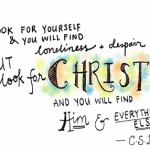 OOK FOR YOURSELF
& YOU WILL FIND
loneliness + despair
UT
look for CHRIST
AND YOU WILL FIND
Him & EVERYTHING
ELSE
— C.S.